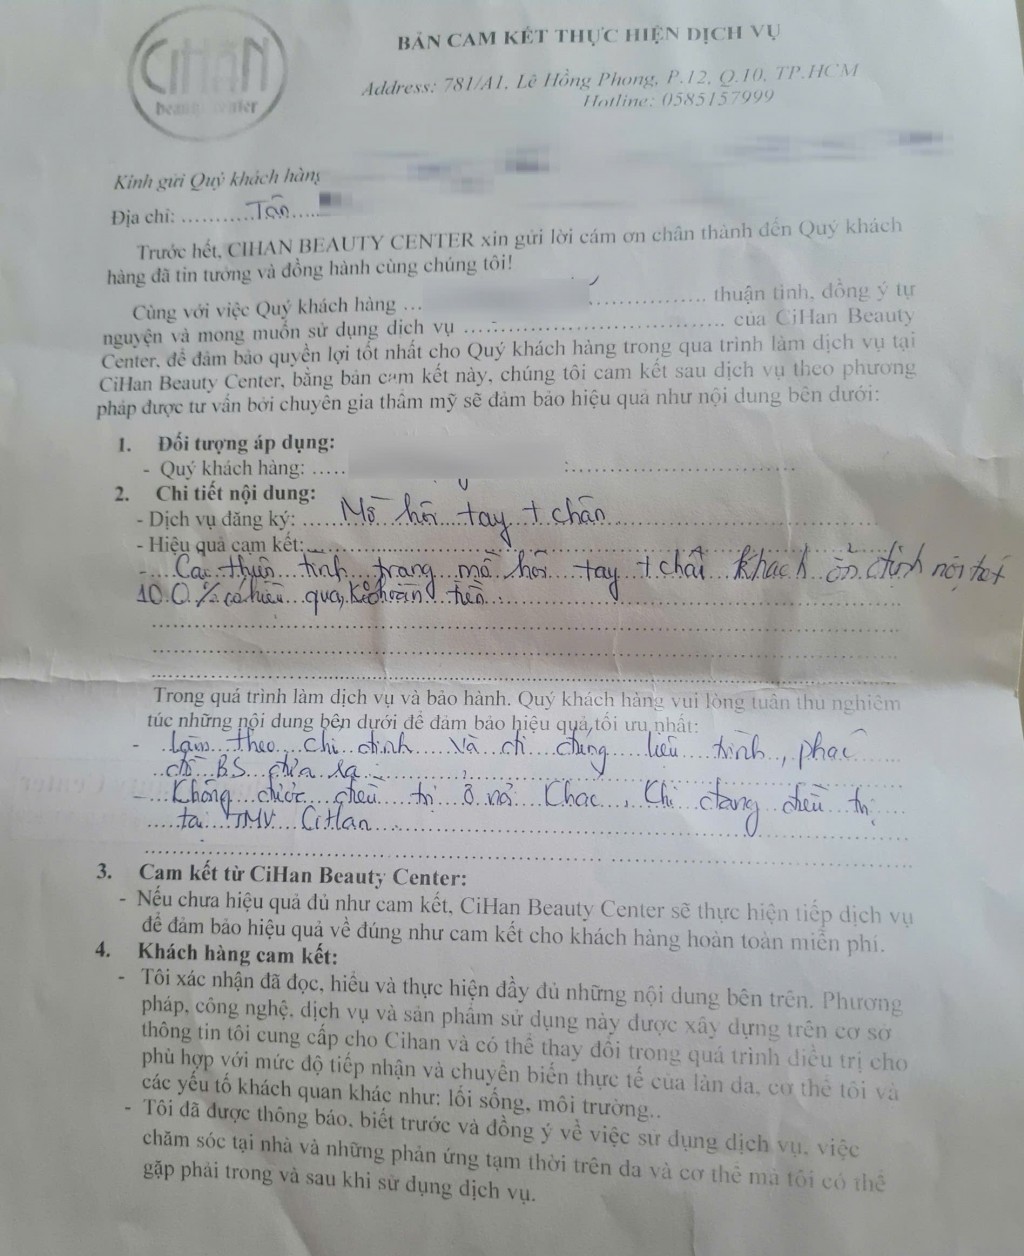 CiHAN
beauty center
BẢN CAM KẾT THỰC HIỆN DỊCH VỤ
Address: 781/A1, Lê Hồng Phong, P.12, Q.10, TP.HCM
Hotline: 0585157999
Kính gửi Quý khách hàng
Địa chỉ: ........... Tân .....
Trước hết, CIHAN BEAUTY CENTER xin gửi lời cám ơn chân thành đến Quý khách
hàng đã tin tưởng và đồng hành cùng chúng tôi!
Cùng với việc Quý khách hàng ... .................. thuận tình, đồng ý tự
nguyện và mong muốn sử dụng dịch vụ ........................................ của CiHan Beauty
Center, để đảm bảo quyền lợi tốt nhất cho Quý khách hàng trong qua trình làm dịch vụ tại
CiHan Beauty Center, bằng bản cam kết này, chúng tôi cam kết sau dịch vụ theo phương
pháp được tư vấn bởi chuyên gia thẩm mỹ sẽ đảm bảo hiệu quả như nội dung bên dưới:
1. Đối tượng áp dụng:
- Quý khách hàng: .....
2. Chi tiết nội dung:
- Dịch vụ đăng ký: ..... Mồ hôi tay + chân
- Hiệu quả cam kết:
- tình trạng mồ hôi tay + chân khách ổn định
100% có hiệu quả, hoàn tiền.
Trong quá trình làm dịch vụ và bảo hành. Quý khách hàng vui lòng tuân thu nghiêm
túc những nội dung bên dưới để đảm bảo hiệu quả tối ưu nhất:
- Làm theo chỉ định và đi đúng liệu trình, phác
đồ BS đưa ra.
- Không được điều trị ở nơi khác, khi đang điều trị
tại TMV CiHan
3. Cam kết từ CiHan Beauty Center:
- Nếu chưa hiệu quả đủ như cam kết, CiHan Beauty Center sẽ thực hiện tiếp dịch vụ
để đảm bảo hiệu quả về đúng như cam kết cho khách hàng hoàn toàn miễn phí.
4. Khách hàng cam kết:
- Tôi xác nhận đã đọc, hiểu và thực hiện đầy đủ những nội dung bên trên. Phương
pháp, công nghệ, dịch vụ và sản phẩm sử dụng này được xây dựng trên cơ sở
thông tin tôi cung cấp cho Cihan và có thể thay đổi trong quá trình điều trị cho
phù hợp với mức độ tiếp nhận và chuyển biến thực tế của làn da, cơ thể tôi và
các yếu tố khách quan khác như: lối sống, môi trường..
- Tôi đã được thông báo, biết trước và đồng ý về việc sử dụng dịch vụ, việc
chăm sóc tại nhà và những phản ứng tạm thời trên da và cơ thể mà tôi có thể
gặp phải trong và sau khi sử dụng dịch vụ.